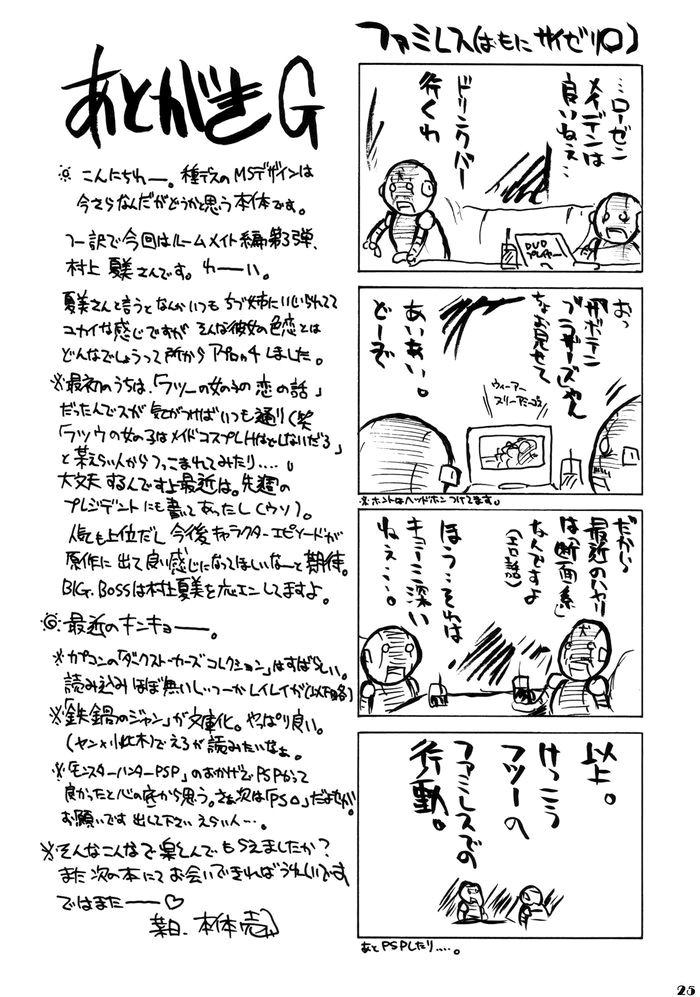 あとがきG
こんにちわー。種デスのMSデザインは
今さらなんだがどうかと思う本体です。
つー訳で今回はルームメイト編第3弾、
村上夏美さんです。わーい。
夏美さんと言うとなんかいつもちづ姉にいじられてて
ユカイな感じですが そんな彼女の色恋とは
どんなでしょうって所からアプローチしました。
※最初のうちは、「フツーの女の子の恋の話」
だったんでスが 気がつけばいつも通り(笑
「フツウの女の子はメイドコスプレHはしないだろ」
と某えらい人からつっこまれてみたり‥‥。
大丈夫 するんですよ最近は。先週の
プレジデントにも書いてあったし(ウソ)。
人気も上位だし 今後キャラクターエピソードが
原作に出て良い感じになってほしいなーと期待。
BIG. BOSSは村上夏美を応エンしてますよ。
◎最近のキンキョー。
※カプコンの「ダークストーカーズコレクション」はすばらしい。
読み込みほぼ無いしっつーかレイレイが(以下略)
※「鉄鍋のジャン」が文庫化。やっぱり良い。
(ヤン×小此木)でえろが読みたいなぁ。
※「モンスターハンターPSP」のおかげでPSPかって
良かったと心の底から思う。さぁ次は「PSO」だよせがた。
お願いです 出して下さい えらい人…。
※そんなこんなで楽しんでもらえましたか?
また次の本にてお会いできればうれしいです
ではまたー♡
某日、本体売
ファミレス(おもにサイゼリ□)
…ローゼン
メイデンは
良いねえ…
ドリンクバー
行くわ
DVD
プレイヤーへ
おっ
「サボテン
ブラザーズ」じゃん
ちょお見せて
あいあい。
どーぞ
ウィーアー
スリーアミーゴス
※ホントはヘッドホンつけてます。
だから
最近のハヤリ
は「断面系」
なんですよ
(エロ話)
ほう‥それは
キョーミ深い
ねぇ…。
以上。
けっこう
フツーの
ファミレスでの
行動。
あとPSPしたり‥‥。
25